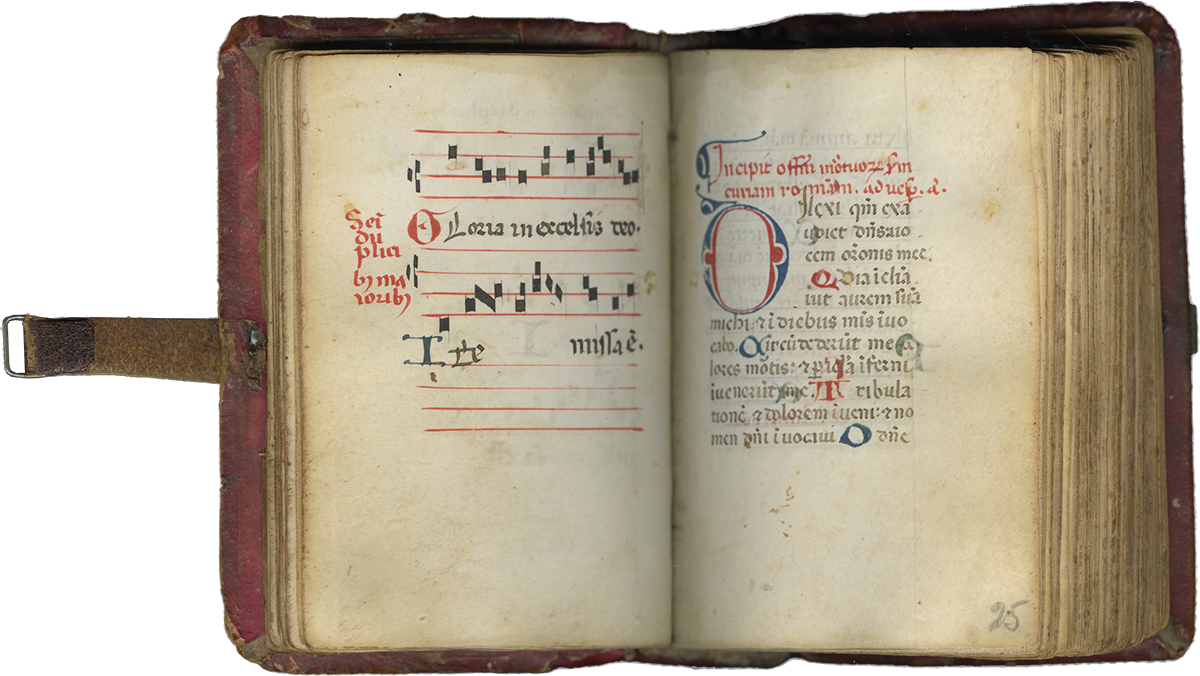 Seī
du
plici
bꝫ ma
ioribꝫ
Gloria in excelsis deo.
Ite missa ē.
Incipit offm̄ mōtuoꝝ sm̄
curiam romām. ad uesp̄. a.
Dilexi qm̄ exa
udiet dn̄s uo
cem orōnis mee.
Quia īclīa
uit aurem suā
michi ⁊ ī diebus mīs īuo
cabo. Circūdederūt me do
lores mōtis: ⁊ ꝑicl̄a īferni
īuenerūt me. Tribula
tionē ⁊ dolorem īueni: ⁊ no
men dn̄i īuocaui O dn̄e
25